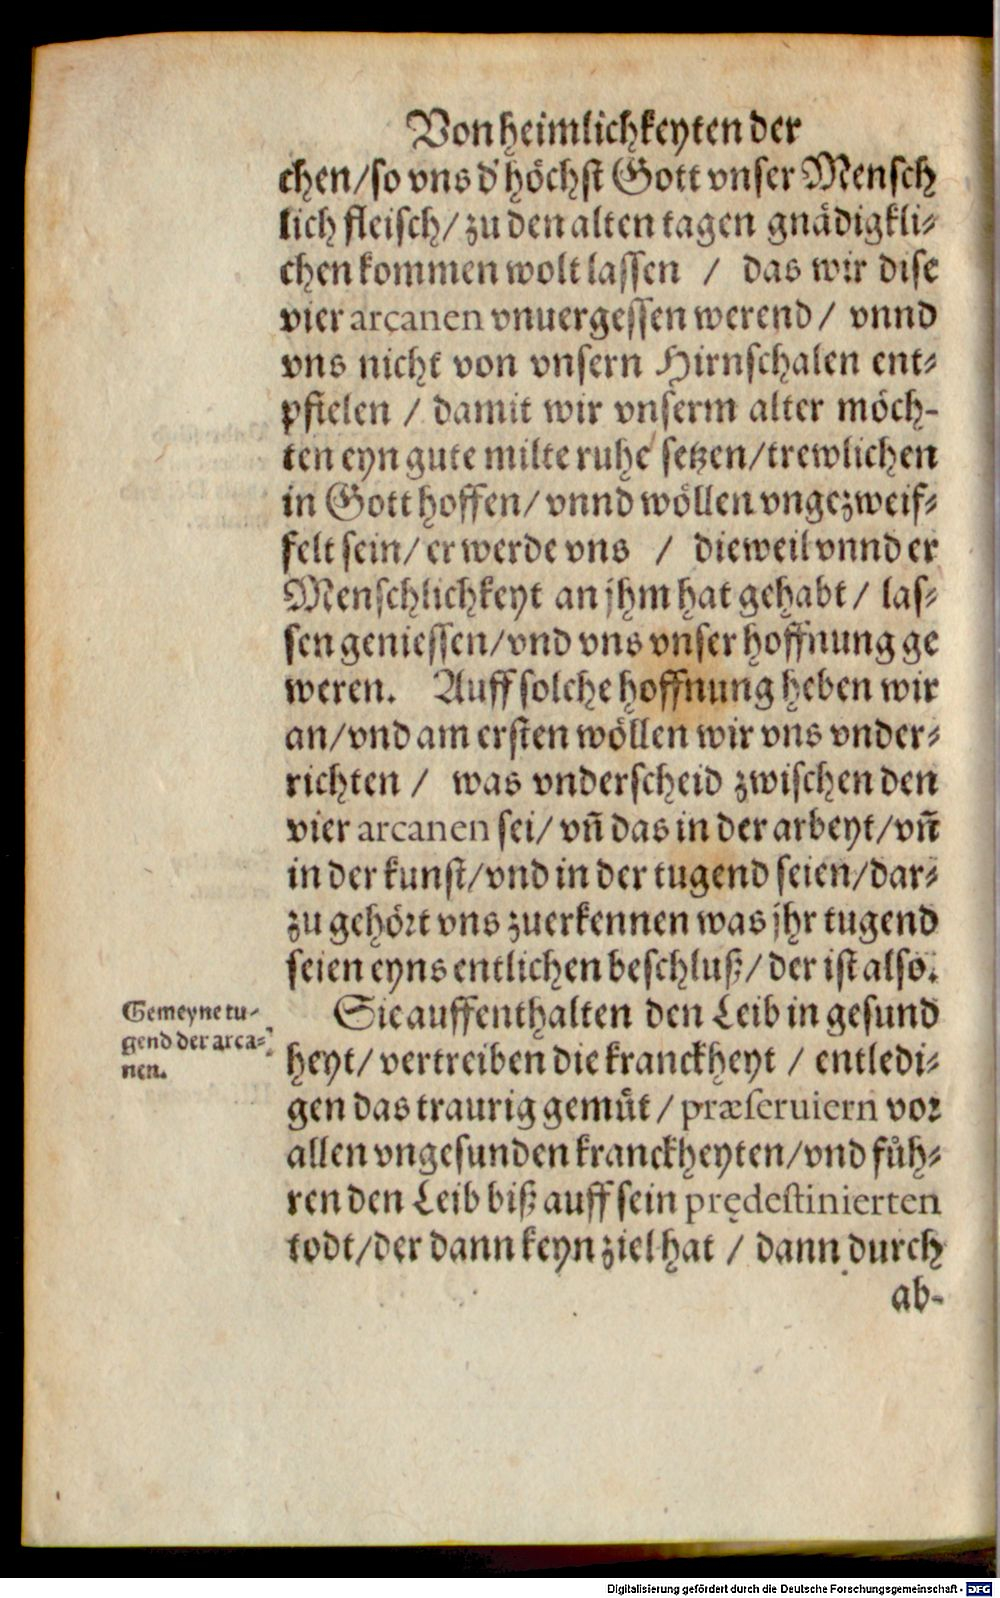 Von heimlichkeyten der
chen/ so vns d' höchst Gott vnser Mensch
lich fleisch/ zu den alten tagen gnädigkli-
chen kommen wolt lassen / das wir dise
vier arcanen vnuergessen werend/ vnnd
vns nicht von vnsern Hirnschalen ent-
pfielen / damit wir vnserm alter möch-
ten eyn gute milte ruhe setzen/ trewlichen
in Gott hoffen/ vnnd wöllen vngezweif-
felt sein/ er werde vns / dieweil vnnd er
Menschlichkeyt an jhm hat gehabt/ las-
sen geniessen/ vnd vns vnser hoffnung ge
weren. Auff solche hoffnung heben wir
an/ vnd am ersten wöllen wir vns vnder-
richten / was vnderscheid zwischen den
vier arcanen sei/ vñ das in der arbeyt/ vñ
in der kunst/ vnd in der tugend seien/ dar-
zu gehört vns zuerkennen was jhr tugend
seien eyns entlichen beschluß/ der ist also.
Gemeyne tu-
gend der arca-
nen.
Sie auffenthalten den Leib in gesund
heyt/ vertreiben die kranckheyt / entledi-
gen das traurig gemüt / præseruiern vor
allen vngesunden kranckheyten/ vnd füh-
ren den Leib biß auff sein prędestinierten
todt/ der dann keyn ziel hat / dann durch
ab-
Digitalisierung gefördert durch die Deutsche Forschungsgemeinschaft - DFG